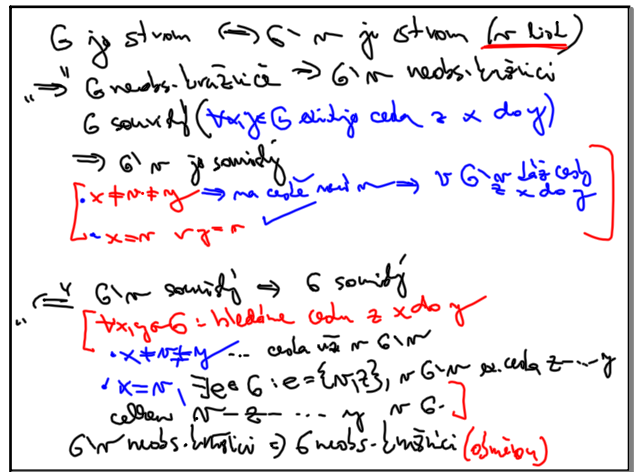 G je strom ⟺ G\v je strom (v list)
„⇒“ G neobs. kružnice ⇒ G\v neobs. kružnici
G souvislý (∀x,y∈G existuje cesta z x do y)
⇒ G\v je souvislý
• x ≠ v ≠ y ⇒ na cestě není v ⇒ v G\v táž cesta z x do y
• x = v ∨ y = v
„⇐“ G\v souvislý ⇒ G souvislý
∀x,y∈G : hledáme cestu z x do y
• x ≠ v ≠ y ... cesta už v G\v
• x = v, ∃e∈G : e = {v,z}, v G\v ex. cesta z ... y
celkem v – z – ... y v G.
G\v neobs. kružnici ⇒ G neobs. kružnici